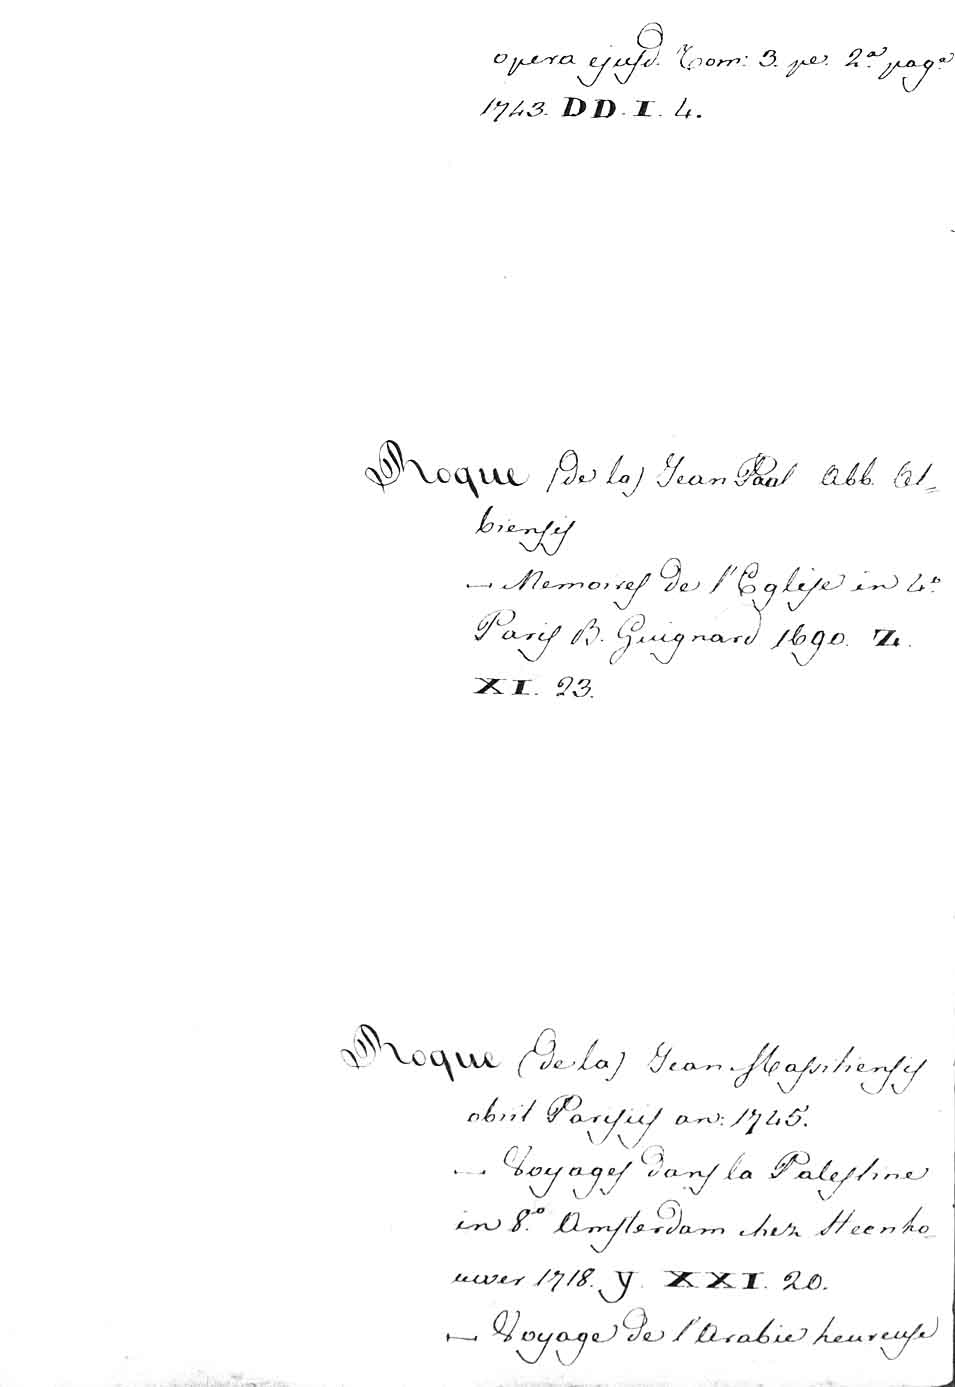 opera ejusd. Tom: 3. pe. 2.ª pag.ª
1743. DD. I. 4.
Roque (de la) Jean Paul Abb. Al-
biensis
— Memoires de l'Eglise in 4.º
Paris B. Guignard 1690. Z.
XI. 23.
Roque (de la) Jean Massiliensis
obiit Parisiis an: 1745.
— Voyages dans la Palestine
in 8.º Amsterdam chez Steenho-
uwer 1718. Y. XXI. 20.
— Voyage de l'Arabie heureuse